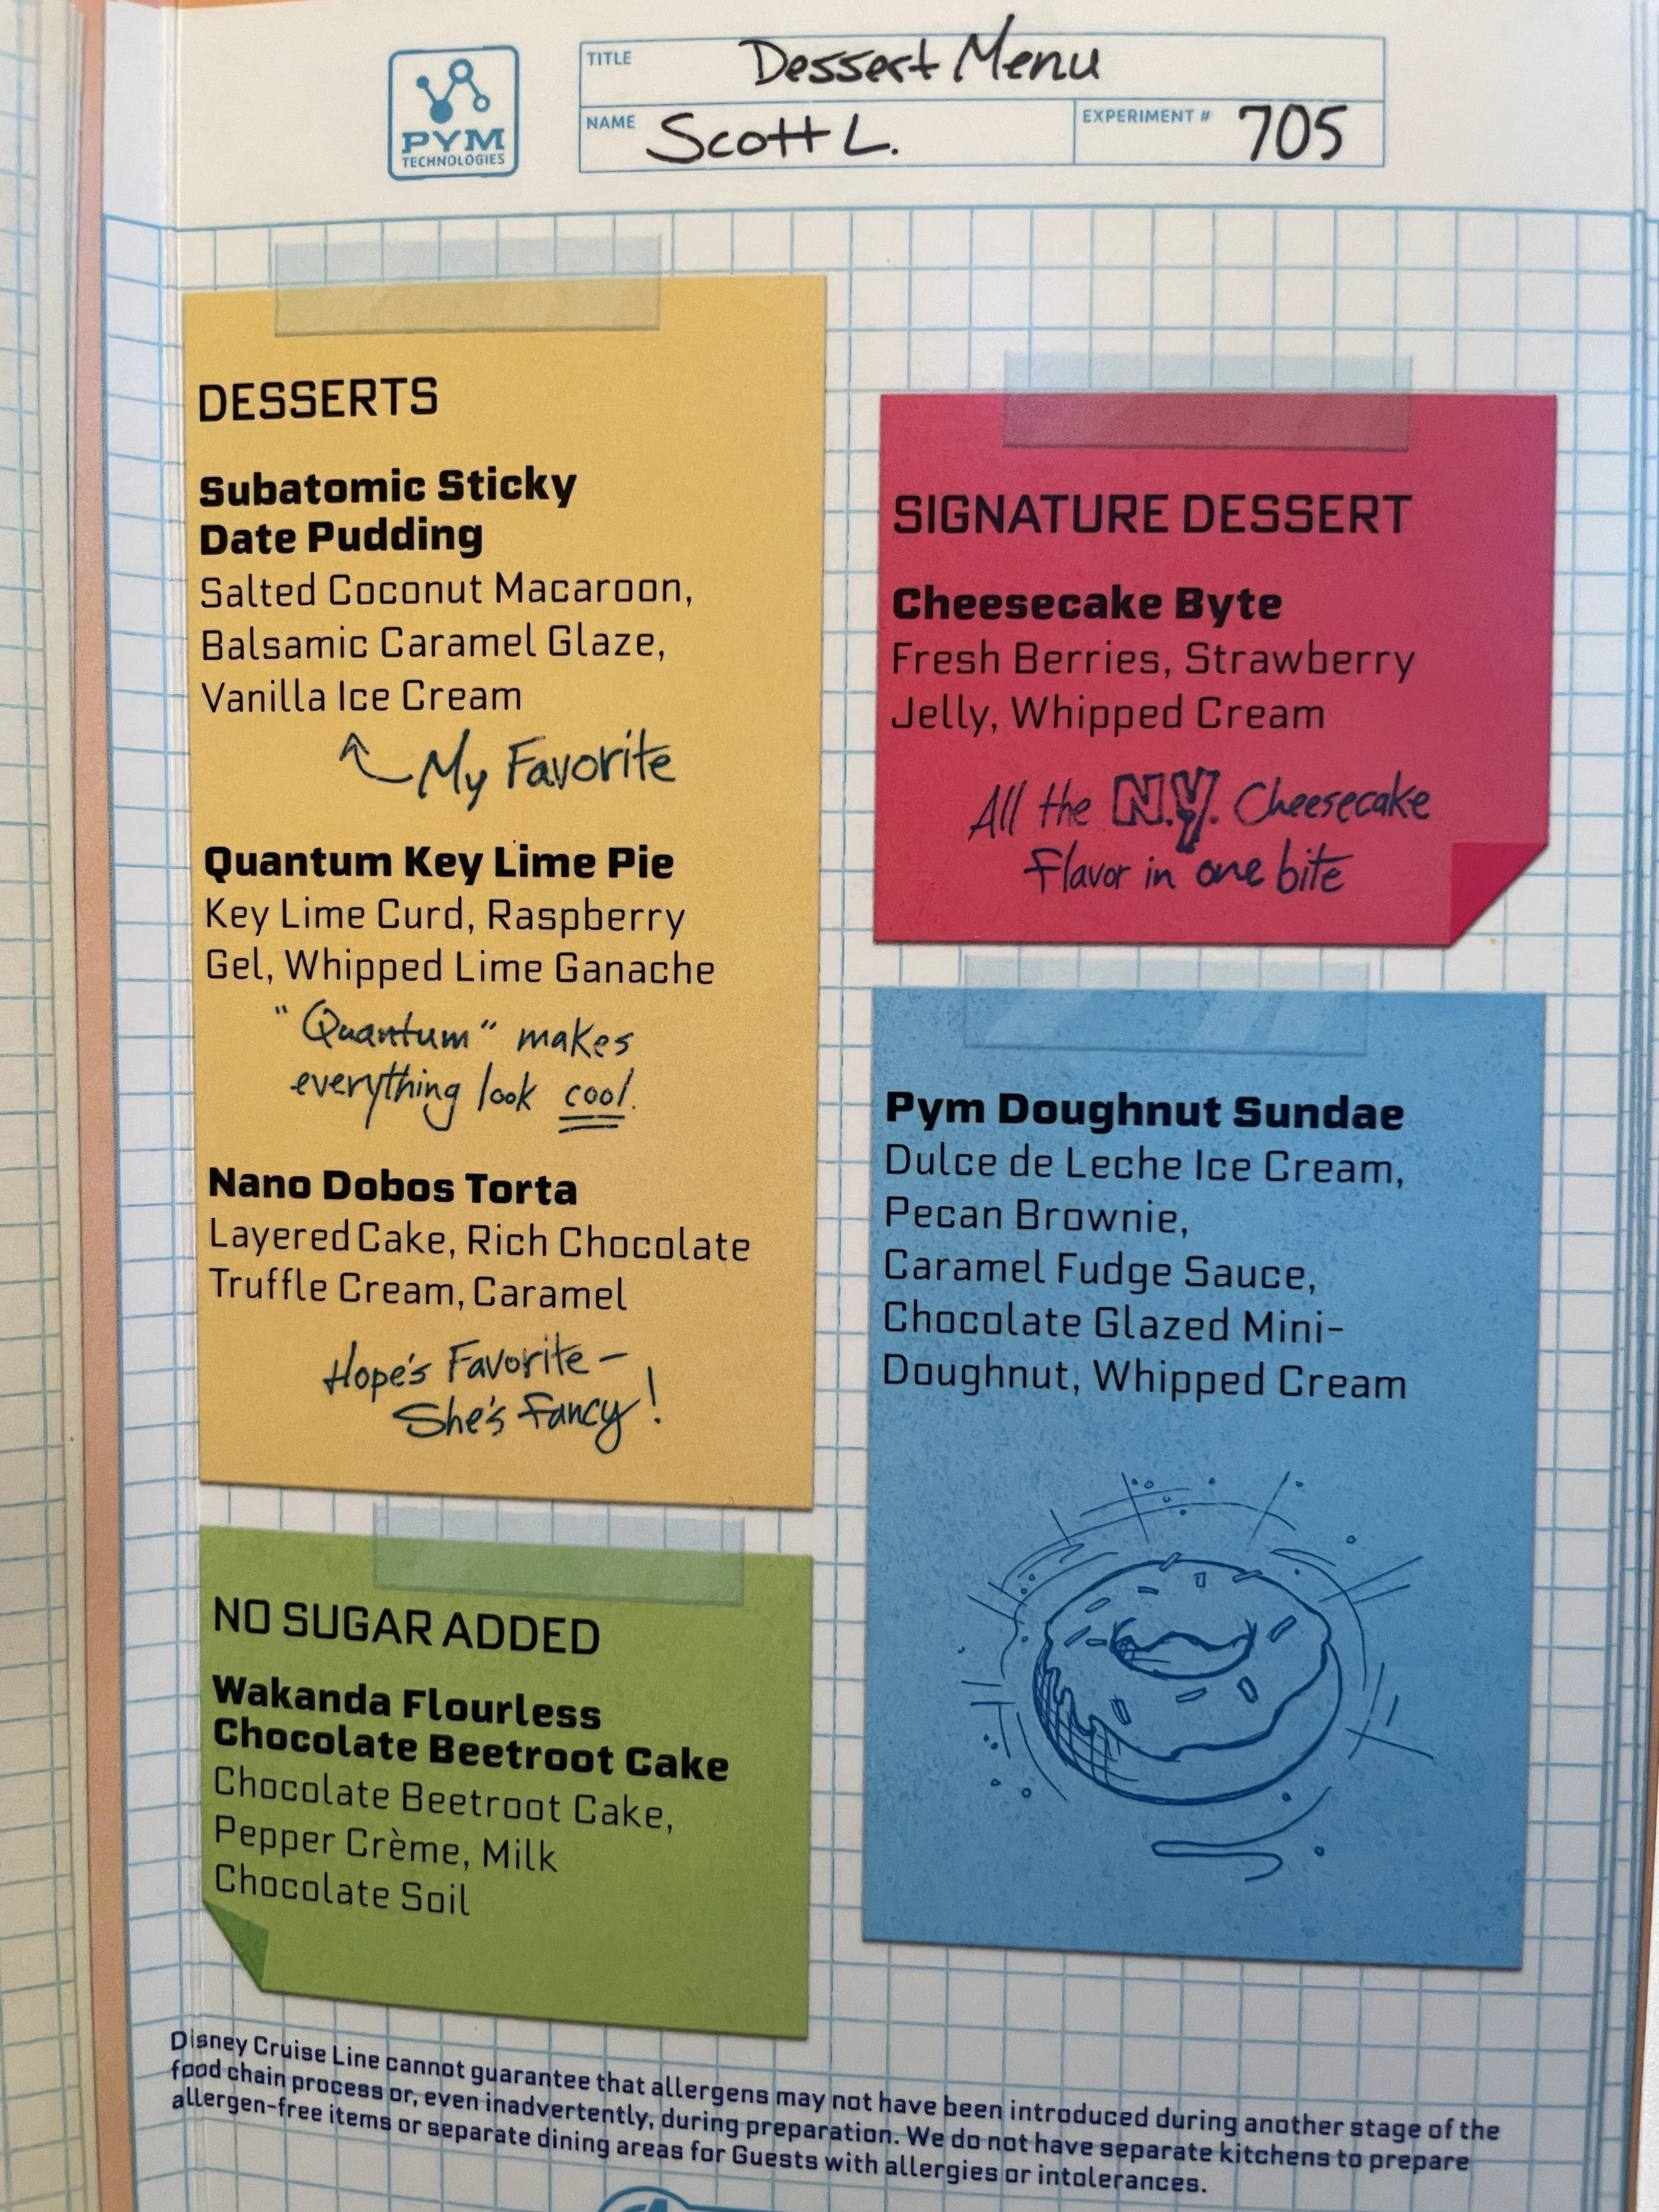 PYM
TECHNOLOGIES
TITLE Dessert Menu
NAME Scott L.
EXPERIMENT # 705
DESSERTS
Subatomic Sticky
Date Pudding
Salted Coconut Macaroon,
Balsamic Caramel Glaze,
Vanilla Ice Cream
My Favorite
Quantum Key Lime Pie
Key Lime Curd, Raspberry
Gel, Whipped Lime Ganache
"Quantum" makes
everything look cool.
Nano Dobos Torta
Layered Cake, Rich Chocolate
Truffle Cream, Caramel
Hope's Favorite -
She's Fancy!
NO SUGAR ADDED
Wakanda Flourless
Chocolate Beetroot Cake
Chocolate Beetroot Cake,
Pepper Crème, Milk
Chocolate Soil
SIGNATURE DESSERT
Cheesecake Byte
Fresh Berries, Strawberry
Jelly, Whipped Cream
All the N.Y. Cheesecake
Flavor in one bite
Pym Doughnut Sundae
Dulce de Leche Ice Cream,
Pecan Brownie,
Caramel Fudge Sauce,
Chocolate Glazed Mini-
Doughnut, Whipped Cream
Disney Cruise Line cannot guarantee that allergens may not have been introduced during another stage of the
food chain process or, even inadvertently, during preparation. We do not have separate kitchens to prepare
allergen-free items or separate dining areas for Guests with allergies or intolerances.